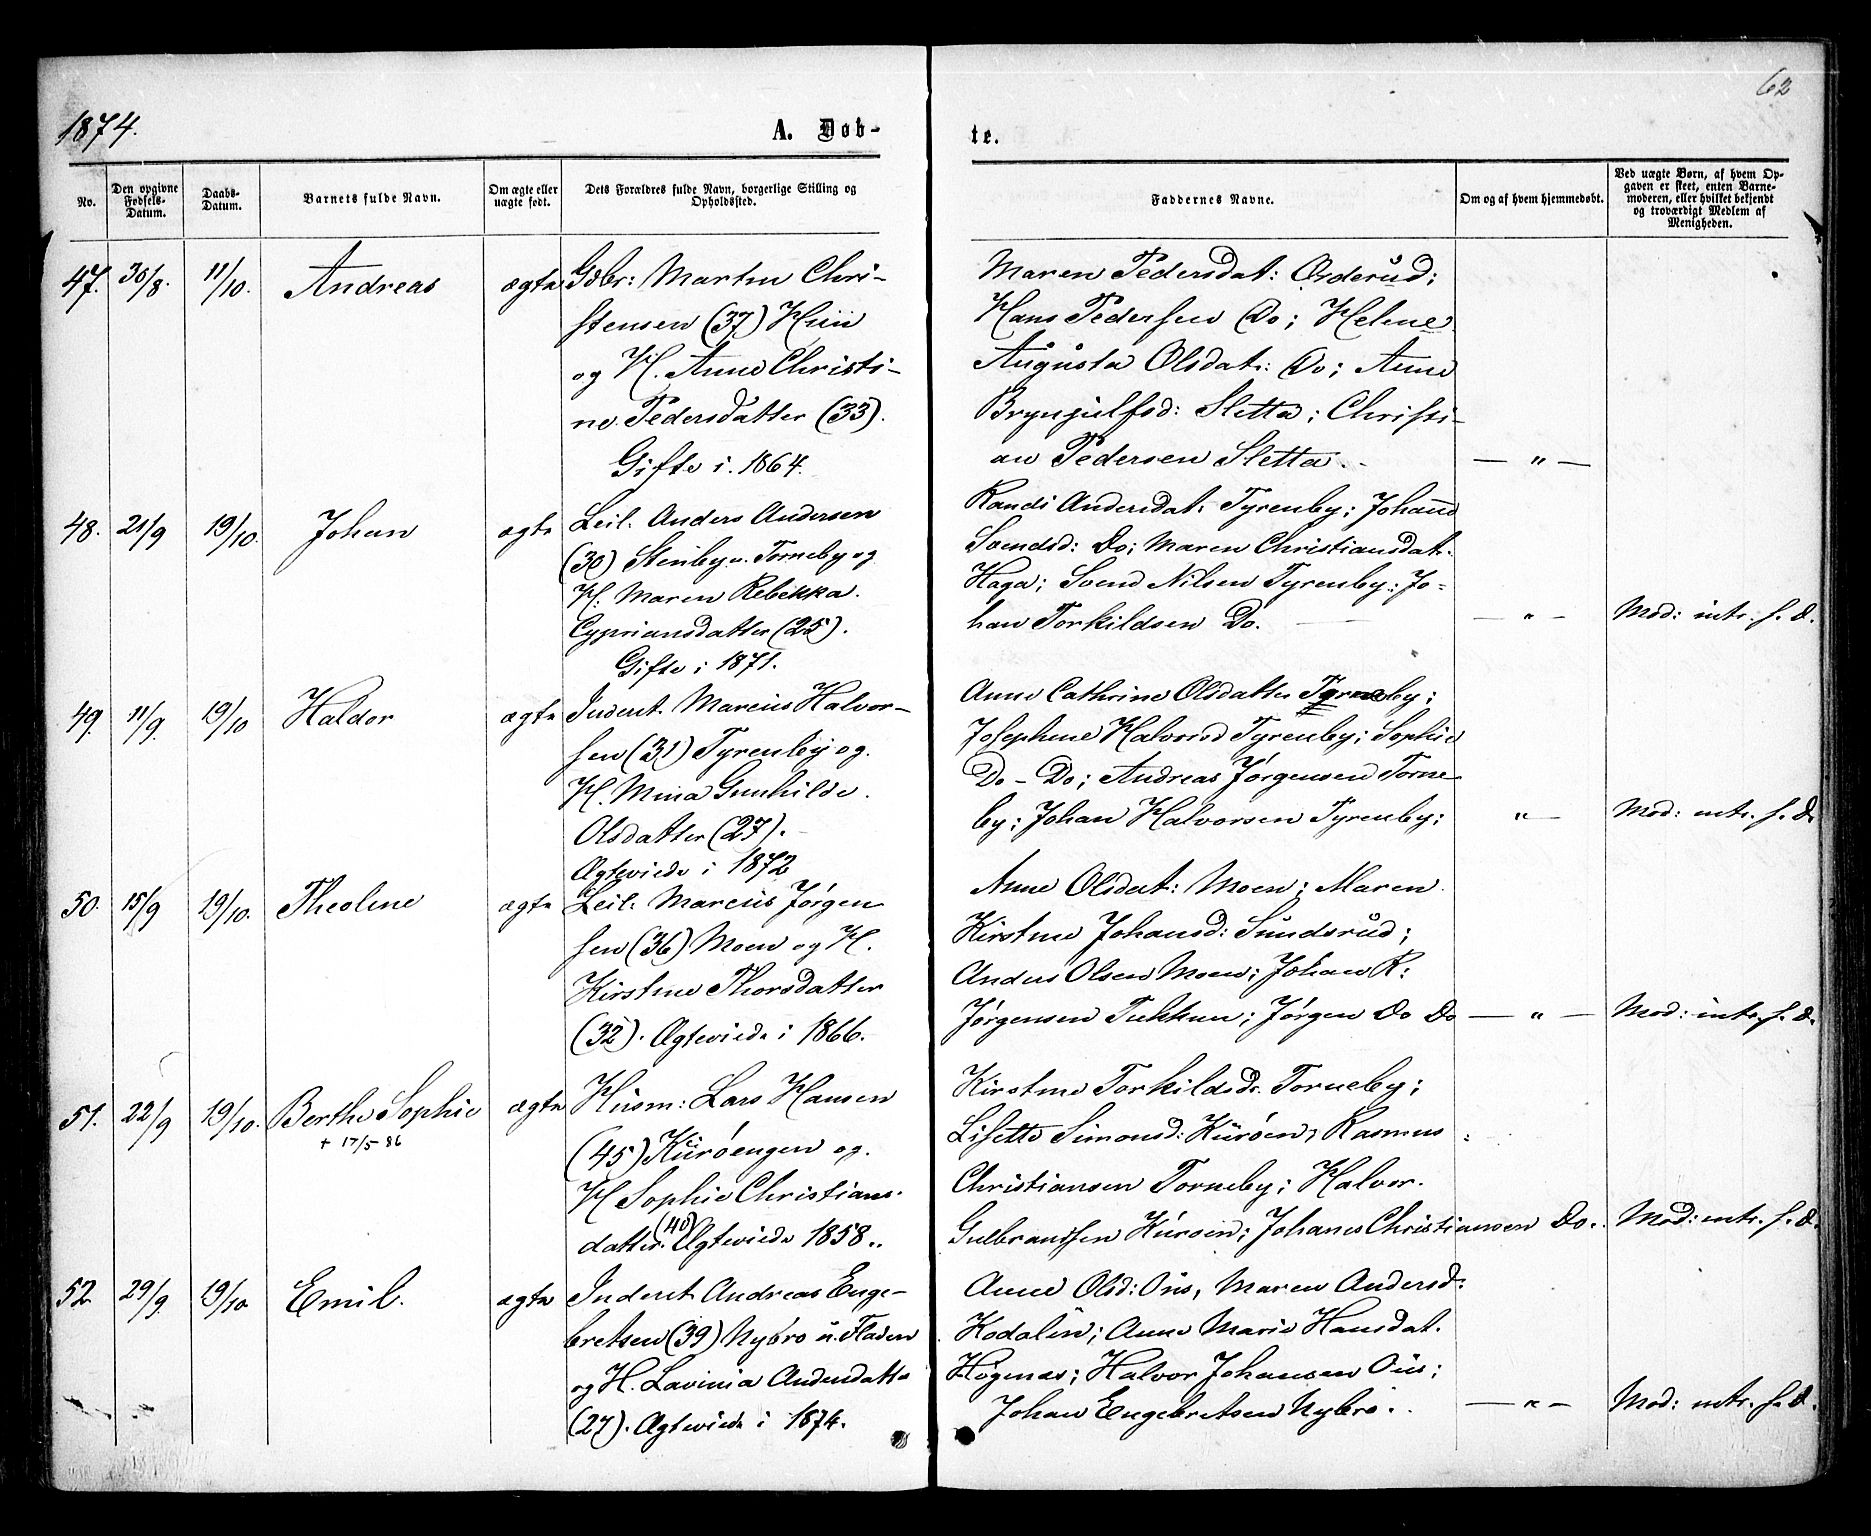 62
1874.
A. Døb-
te.
No.
Den opgivne Fødsels-Datum.
Daabs-Datum.
Barnets fulde Navn.
Om ægte eller uægte født.
Dets Forældres fulde Navn, borgerlige Stilling og Opholdssted.
Faddernes Navne.
Om og af hvem hjemmedøbt.
Ved uægte Børn, af hvem Op-
gaven er skeet, enten Barne-
moderen, eller hvilket bekjendt
og troværdigt Medlem af
Menigheden.
47. 30/8. 11/10. Andreas ægte Gdbr: Martin Chri-
stensen (37) Huii
og H. Anne Christi-
ne Pedersdatter (33).
Gifte i 1864.
Maren Pedersdat: Osderud;
Hans Pedersen Do; Helene
Augusta Olsdat: Do; Anne
Brynjulfsd: Sletta; Christi-
an Pedersen Sletta.
— " —
48. 21/9 19/10. Johan ægte Leil. Anders Andersen
(30) Stenbye u. Torneby og
H: Maren Rebekka
Cypriansdatter (25).
Gifte i 1871.
Randi Andersdat: Tyrenby; Johanne
Svendsd: Do; Maren Christiansdat.
Haga; Svend Nilsen Tyrenby; Jo-
han Torkildsen Do.
— " — Mod: intr. f. D.
49. 11/9. 19/10 Haldor ægte Inderst. Marcus Halvor-
sen (31) Tyrenby og
H. Mina Gunhilde
Olsdatter (27).
Ægteviede i 1872
Anne Cathrine Olsdatter Torneby;
Josephine Halvorsd Tyrenby; Sophie
Do - Do; Andreas Jørgensen Torne-
by; Johan Halvorsen Tyrenby;
" — Mod: intr. f. D.
50. 15/9 19/10. Theoline ægte Leil: Marcus Jørgen
sen (36) Moen og H.
Kirstine Thorsdatter
(32). Ægteviede i 1866.
Anne Olsdat: Moen; Maren
Kirstine Johansd: Sundsrud;
Anders Olsen Moen; Johan R:
Jørgensen Tukkun; Jørgen Do Do
— " — Mod: intr. f. D.
51. 22/9 19/10. Berthe Sophie ægte Husm: Lars Hansen
+ 17/5-86
(45) Kurøengen og
H Sophie Christians-
datter (40) Ægteviede 1858.
Kirstine Torkildsd. Torneby;
Lisette Simonsd: Kurøen; Rasmus
Christiansen Torneby; Halvor
Gulbrandsen Kurøen; Johanes Christiansen Do.
Mod: intr. f. D.
52. 29/9. 19/10. Emil. ægte Inderst Andreas Enge-
bretsen (39) Nybro u. Fladen
og H. Lavinia Andersdatte
(27). Ægteviede i 1874.
Anne Olsd: Ous, Maren Andersd:
Kodalen; Anne Marie Hansdat.
Høgnæs; Halvor Johansen Ous;
Johan Engebretsen Nybro.
— " — Mod: intr. f. D.